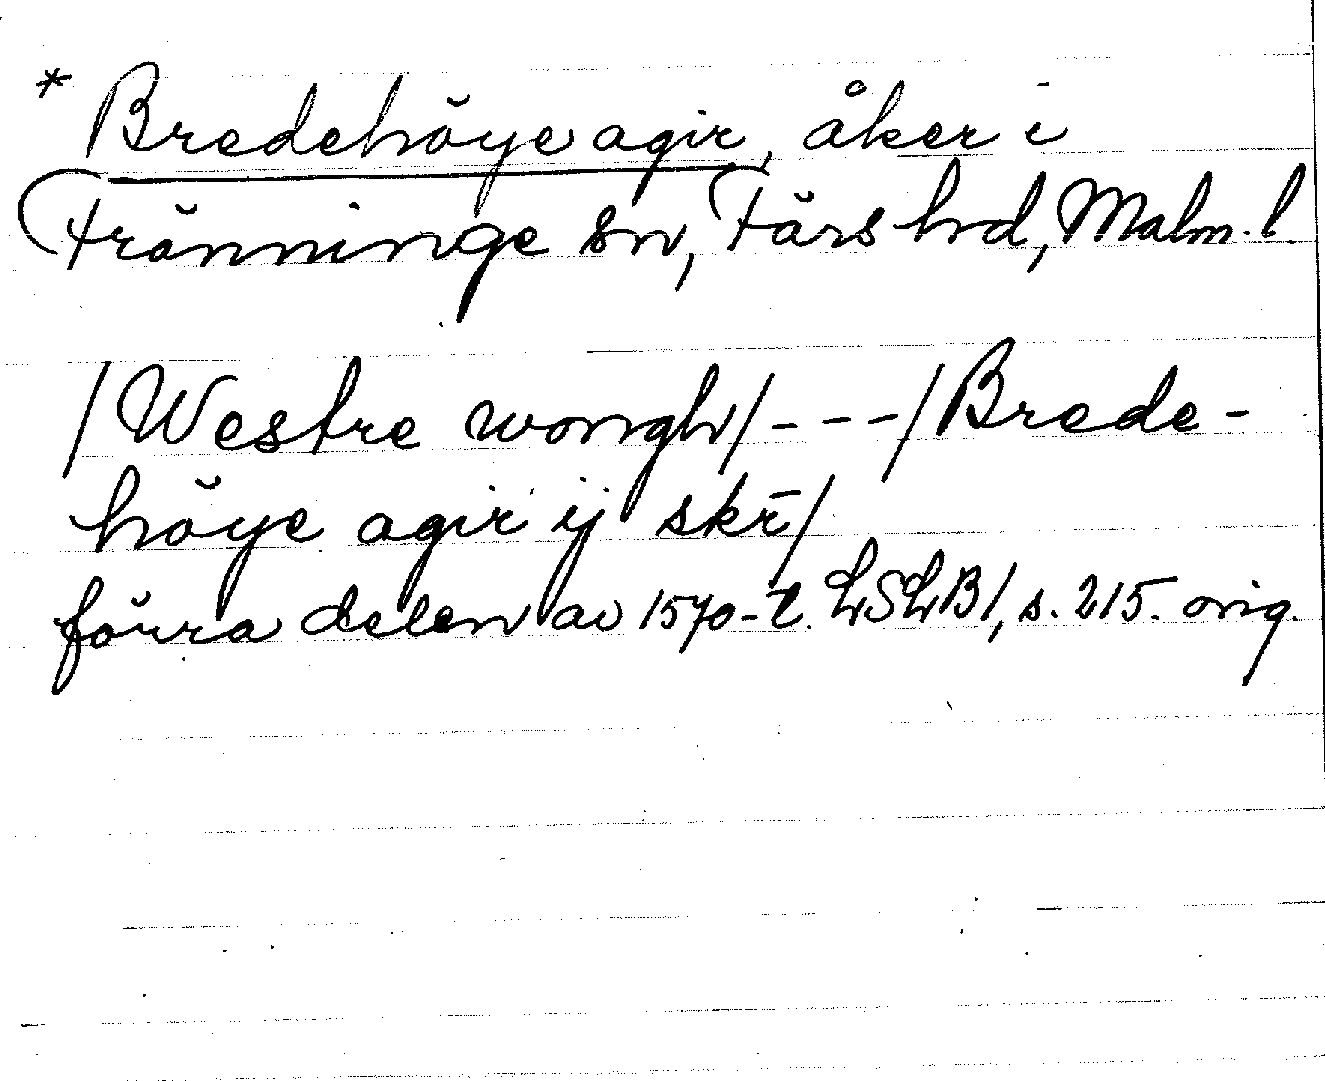 * Bredehöye agir, åker i
Tränninge sn, Färs hd, Malm. l.
/Westre wongh/---/Brede-
höye agir ij skr̄/
förra delen av 1570-t. LSLB1, s. 215. orig.